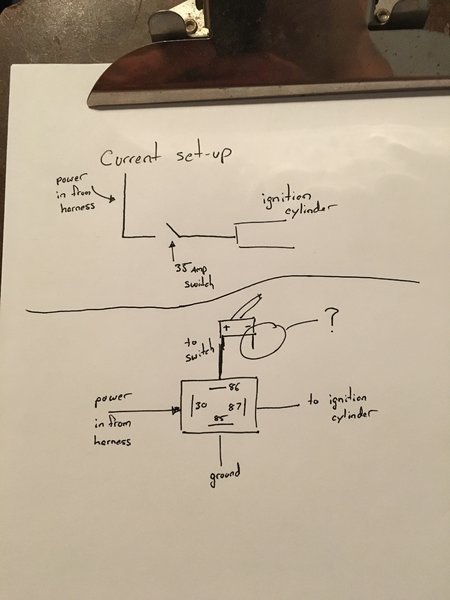 Current set-up
power
in from
harness
ignition
cylinder
35 amp
switch
+ -
?
to
switch
86
30
87
85
power
in from
harness
to ignition
cylinder
ground